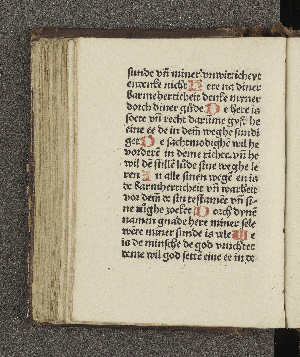 sunde vn̄ miner vnwitticheyt
en denke nicht Here na diner
barmeherticheit denke myner
dorch diner gūde De here is
soete vn̄ recht darūme gyft he
eine ee de in dem weghe sundi
get De sachtmodighe wil he
vorderē in deme richte. vn̄ he
wil dē stille lūde sine weghe le
ren In alle sinen wegē en is
de barmherticheit vn̄ warheit
vor dem de sin testamēt vn̄ si-
ne tughe soeket Dorch dynē
namen gnade here miner sele
wēte miner sunde is vele We
is de minsche de god vruchtet
deme wil god settē eine ee in de